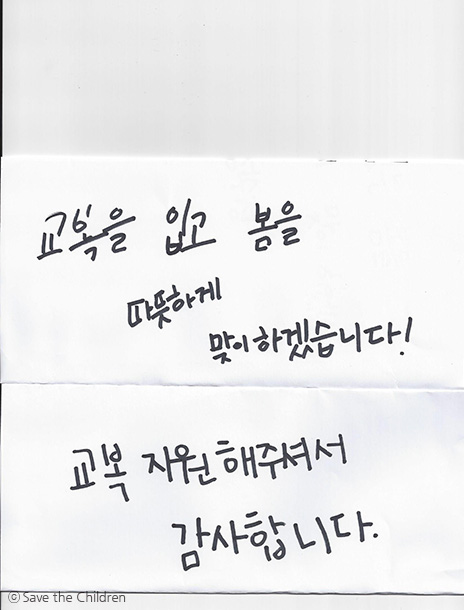 교복을 입고 봄을
따뜻하게
맞이하겠습니다!
교복 지원해주셔서
감사합니다.
ⓒ Save the Children